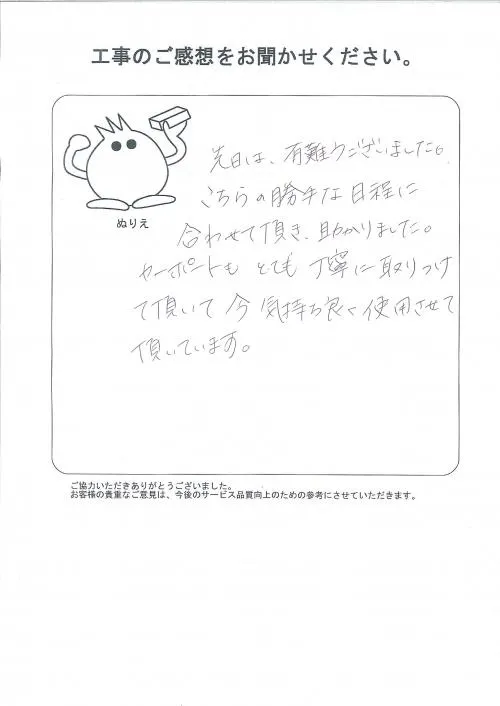 工事のご感想をお聞かせください。
先日は、有難うございました。
こちらの勝手な日程に
合わせて頂き、助かりました。
ぬりえ
カーポートも とても 丁寧に取りつけ
て頂いて 今 気持ち良く使用させて
頂いています。
ご協力いただきありがとうございました。
お客様の貴重なご意見は、今後のサービス品質向上のための参考にさせていただきます。